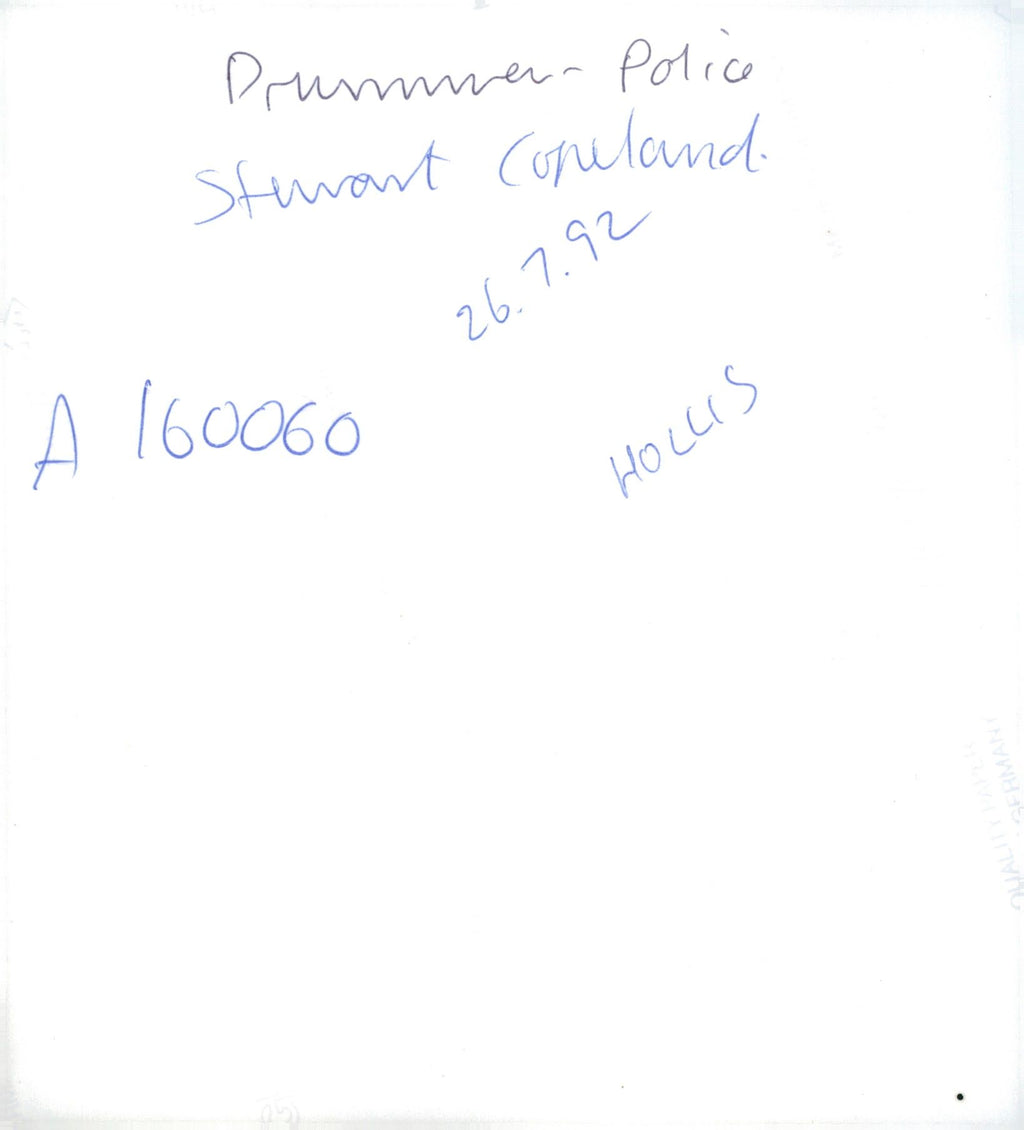 Drummer - Police
Stewart Copeland.
26.7.92
A 160060
HOLLIS
GERMANY